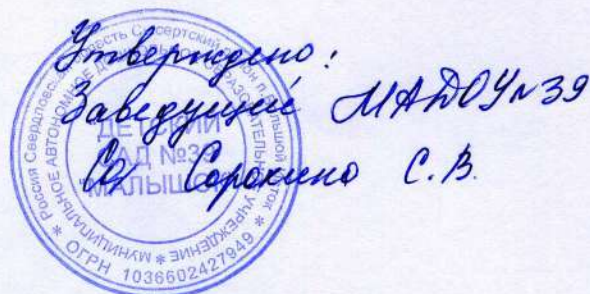 Утверждено:
Заведущей МАДОУ №39
Сорокина С.В.
Россия Свердловская область Сысертский район п. Большой Исток
МУНИЦИПАЛЬНОЕ АВТОНОМНОЕ ДОШКОЛЬНОЕ ОБРАЗОВАТЕЛЬНОЕ УЧРЕЖДЕНИЕ
ДЕТСКИЙ
САД №39
"МАЛЫШОК"
* ОГРН 1036602427949 *